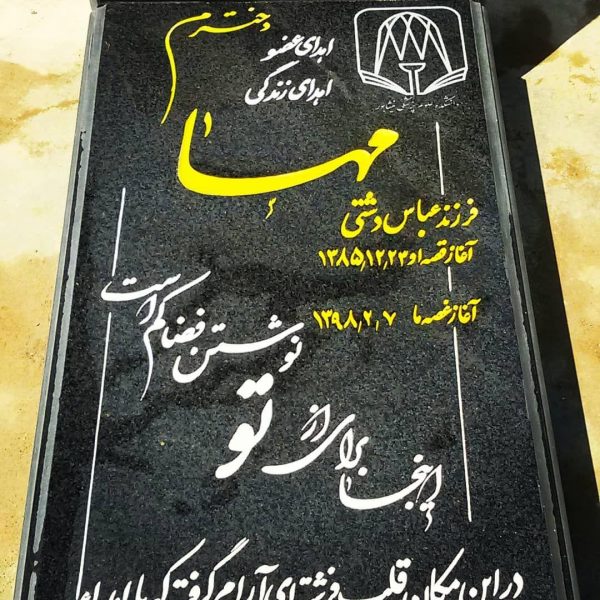 دخترم
اهدای عضو
اهدای زندگی
دانشکده علوم پزشکی نیشابور
مهسا
فرزند عباس دشتی
آغاز قصه او ۱۳۸۵,۱۲,۲۳
آغاز غصه ما ۱۳۹۸,۲,۷
اینجا برای از
تو
نوشتن فضا کم است
در این مکان قلب فرشته‌ای آرام گرفت که با